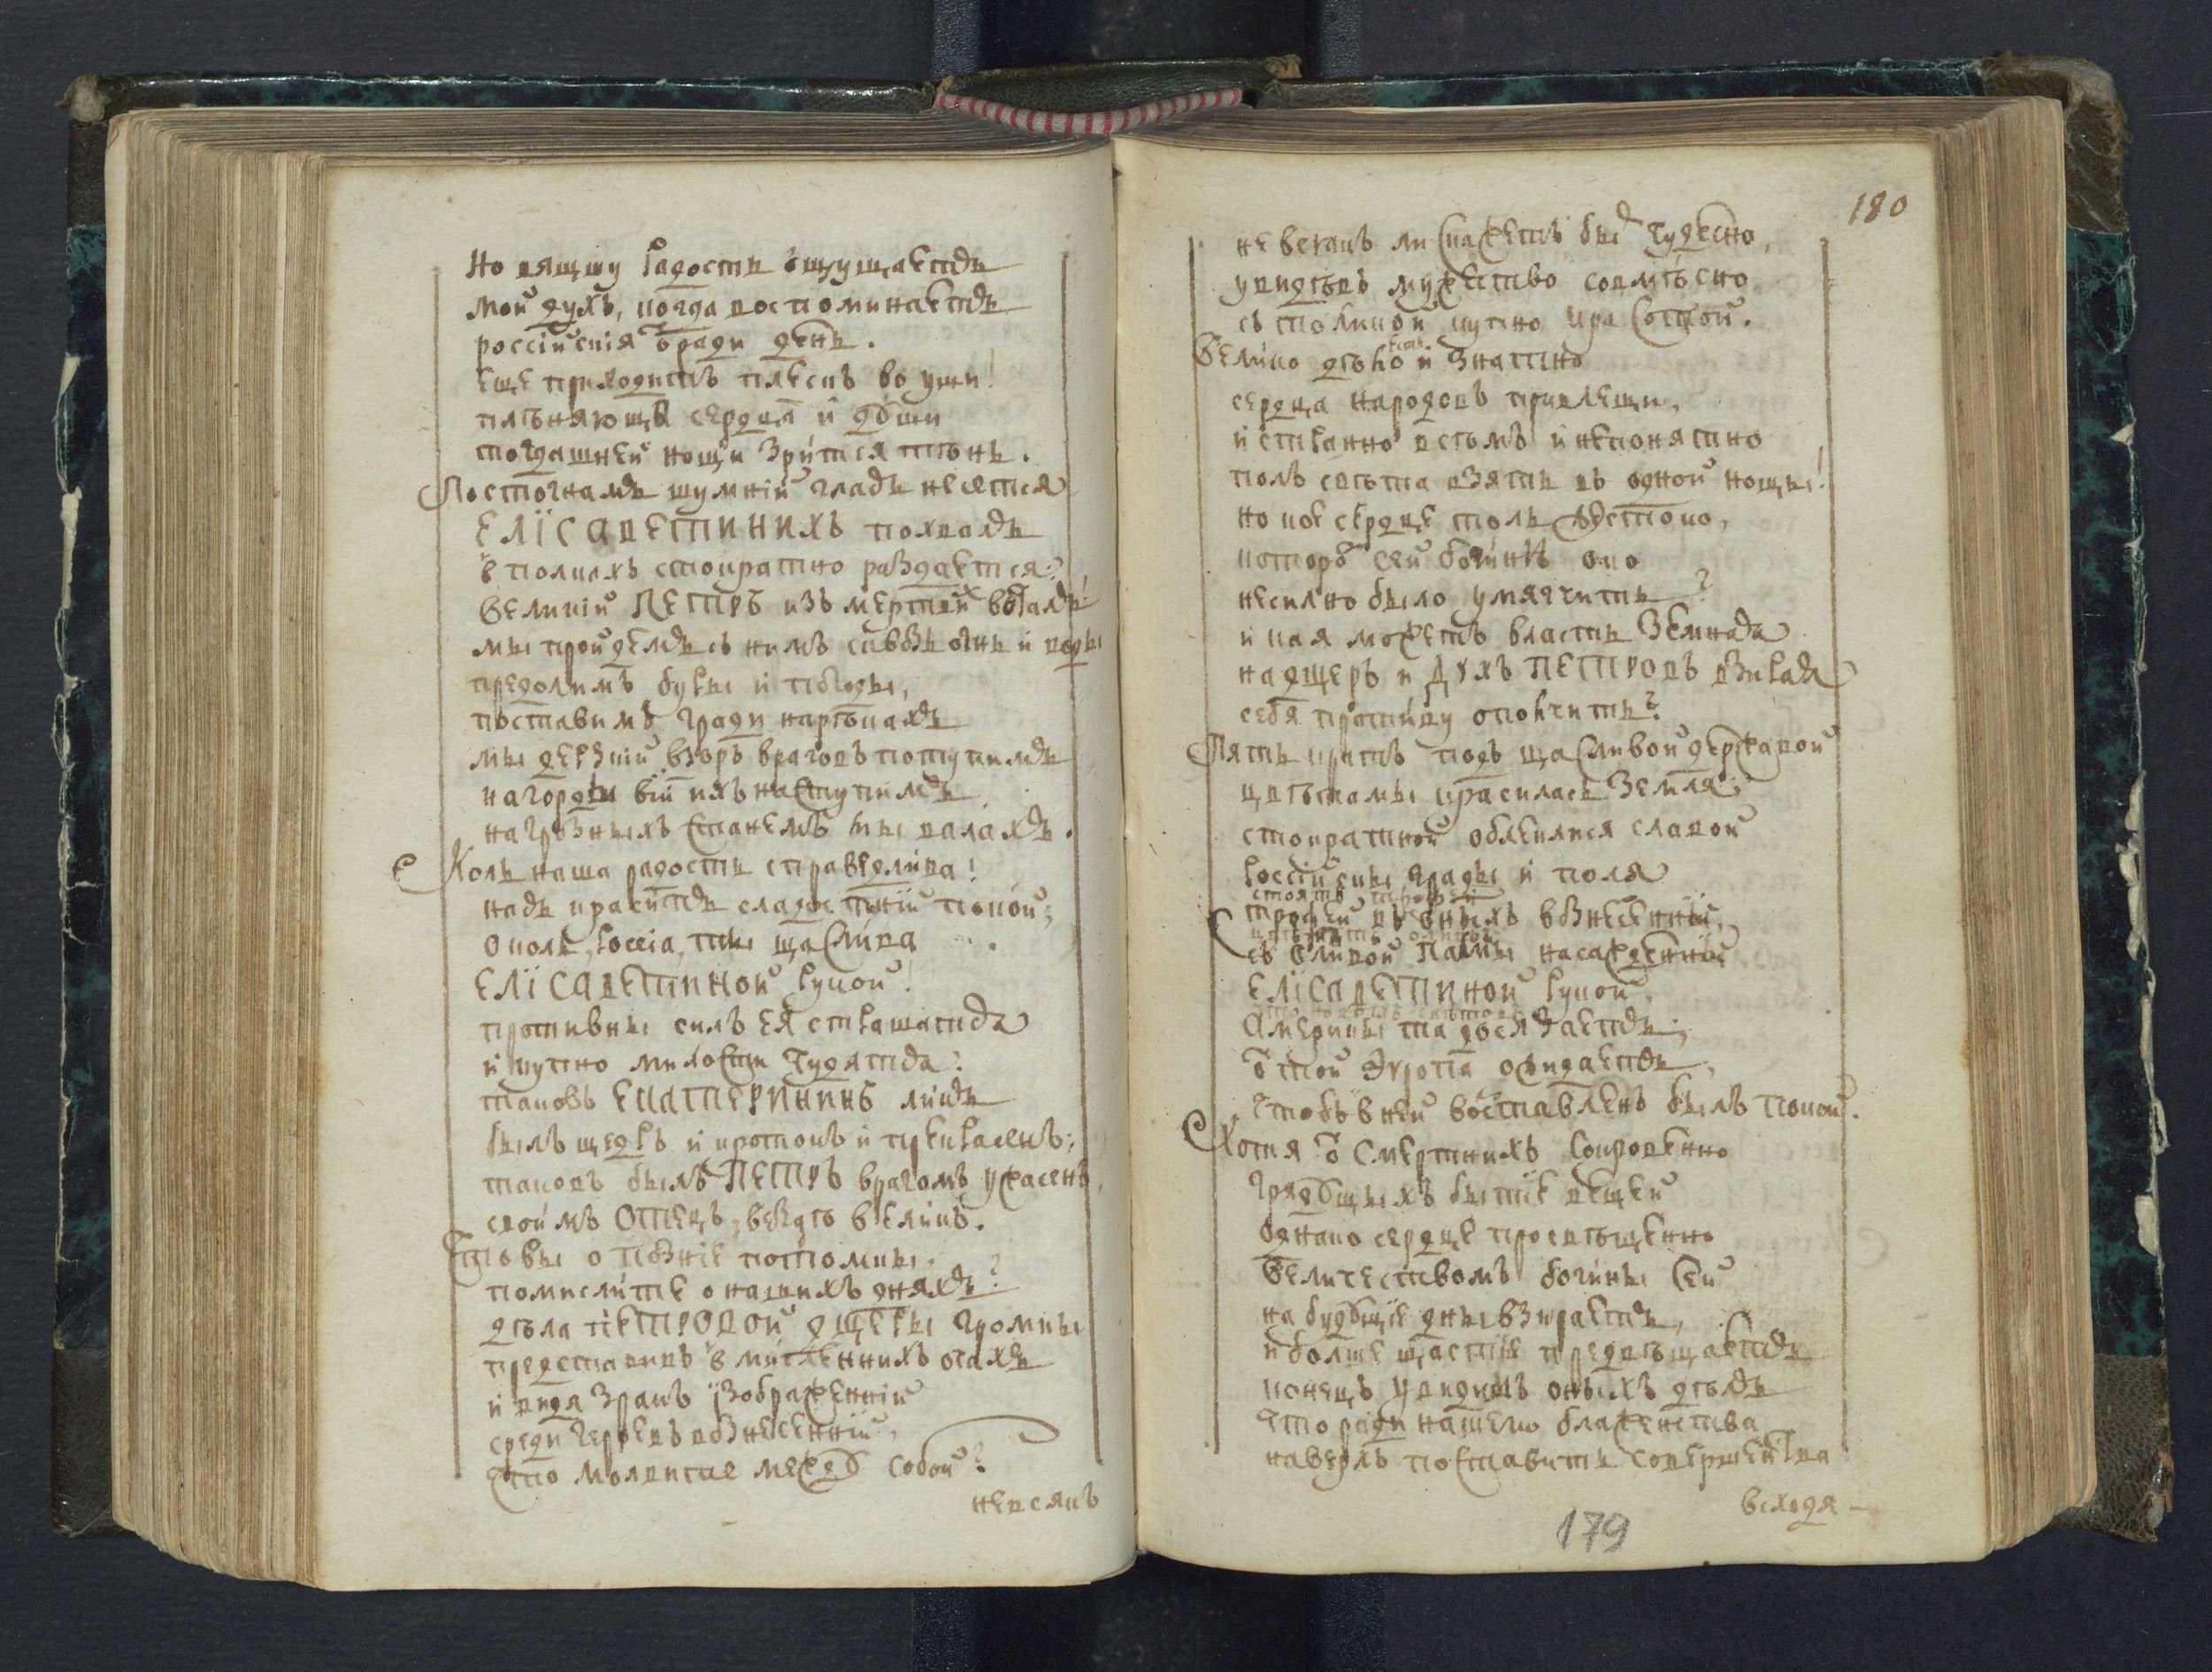 Но вящшу радость ощущаетъ
мой духъ, когда воспоминаетъ
россійскія Ѿради день.
еще приходитъ плескъ во уши!
плѣняющая сердца и дꙋши
тогдашней нощи зрится тѣнь.
По стогнамъ шумній гласъ несется
ЕЛІСАВЕТИНИХЪ похвалъ
в полкахъ стократно раздается:
Великій ПЕТРЪ изъ мертвихъ всталъ!
мы пройдемъ съ нимъ сквозь огнь и воды
предолимъ бури и погоды,
поставимъ гради на рѣкахъ
мы дерзкій взоръ враговъ потупимъ
на горды вій ихъ наступимъ
на грозныхъ станемъ мы валахъ.
Коль наша радость справедлива!
насъ краситъ сладостній покой;
о коль, Россіа, ты щаслива
ЕЛІСАВЕТИНОЙ рукой!
противны силъ ея страшатся
и купно милости чудятся:
таковъ ЕКАТЕРИНИНЪ ликъ
былъ щедръ и кротокъ и прекрасенъ;
таковъ былъ ПЕТРЪ врагомъ ужасенъ,
своимъ Отецъ, вездѣ великъ.
Что вы о позніе потомки,
помислите о нашихъ дняхъ?
дѣла ПЕТРОВОЙ дщеры громки
представивъ в мисленнихъ очахъ
и видя зракъ изображенній
среди героевъ вознесенній,
Что молвите межꙋ собой?
не всякъ
180
не всякъ ли скажетъ быть чудесно,
увидѣвъ мужество совмѣсно
съ толикой купно красотой.
Велико дѣло есть и знатно
сердца народовъ привлещи,
и странно всѣмъ и непонятно
полъ свѣта взять въ одной нощы!
но кое сердце толь жестоко,
которо сей богинѣ око
несилно было умягчить?
и кая можетъ власть земная
на дщерь и Духъ ПЕТРОВЪ взирая
себя противу ополчить?
Пять кратъ подъ щасливой державой
цвѣтамы красилась земля;
стократной облеклися славой
Россійскы грады и поля
стоятъ
трофей въ оныхъ вознесенный,
съ Оливой Палмы насажденный
ЕЛІСАВЕТИНОЙ рукой,
Америкы та досязаетъ;
Ѿ той Эуропа ожидаетъ,
чтобъ в ней возставленъ былъ покой.
Хотя Ѿ смертнихъ сокровенно
грядꙋщыхъ бытіе вещей
однако сердце просвѣщенно
Величествомъ богины сей
на будꙋщіе дны взираетъ,
и болше щастіе предвѣщаетъ
конецъ увидимъ оныхъ дѣлъ
что ради нашего блаженства
наверхъ поставить совершенства
всходя –
179